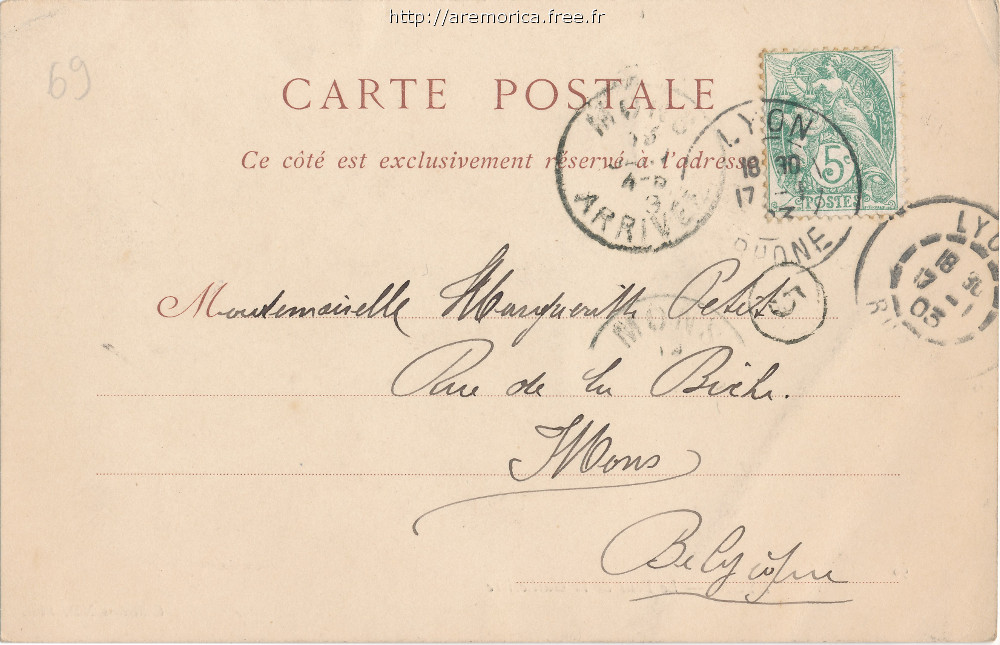 http://aremorica.free.fr
69
CARTE POSTALE
Ce côté est exclusivement réservé à l'adresse
5c
POSTES
MONS
ARRIVÉE
LYON
18 30
17
RHONE
LYO
18 30
17
03
5
Mademoiselle Marguerite Petit
MONS
Rue de la Biche.
Mons
Belgique